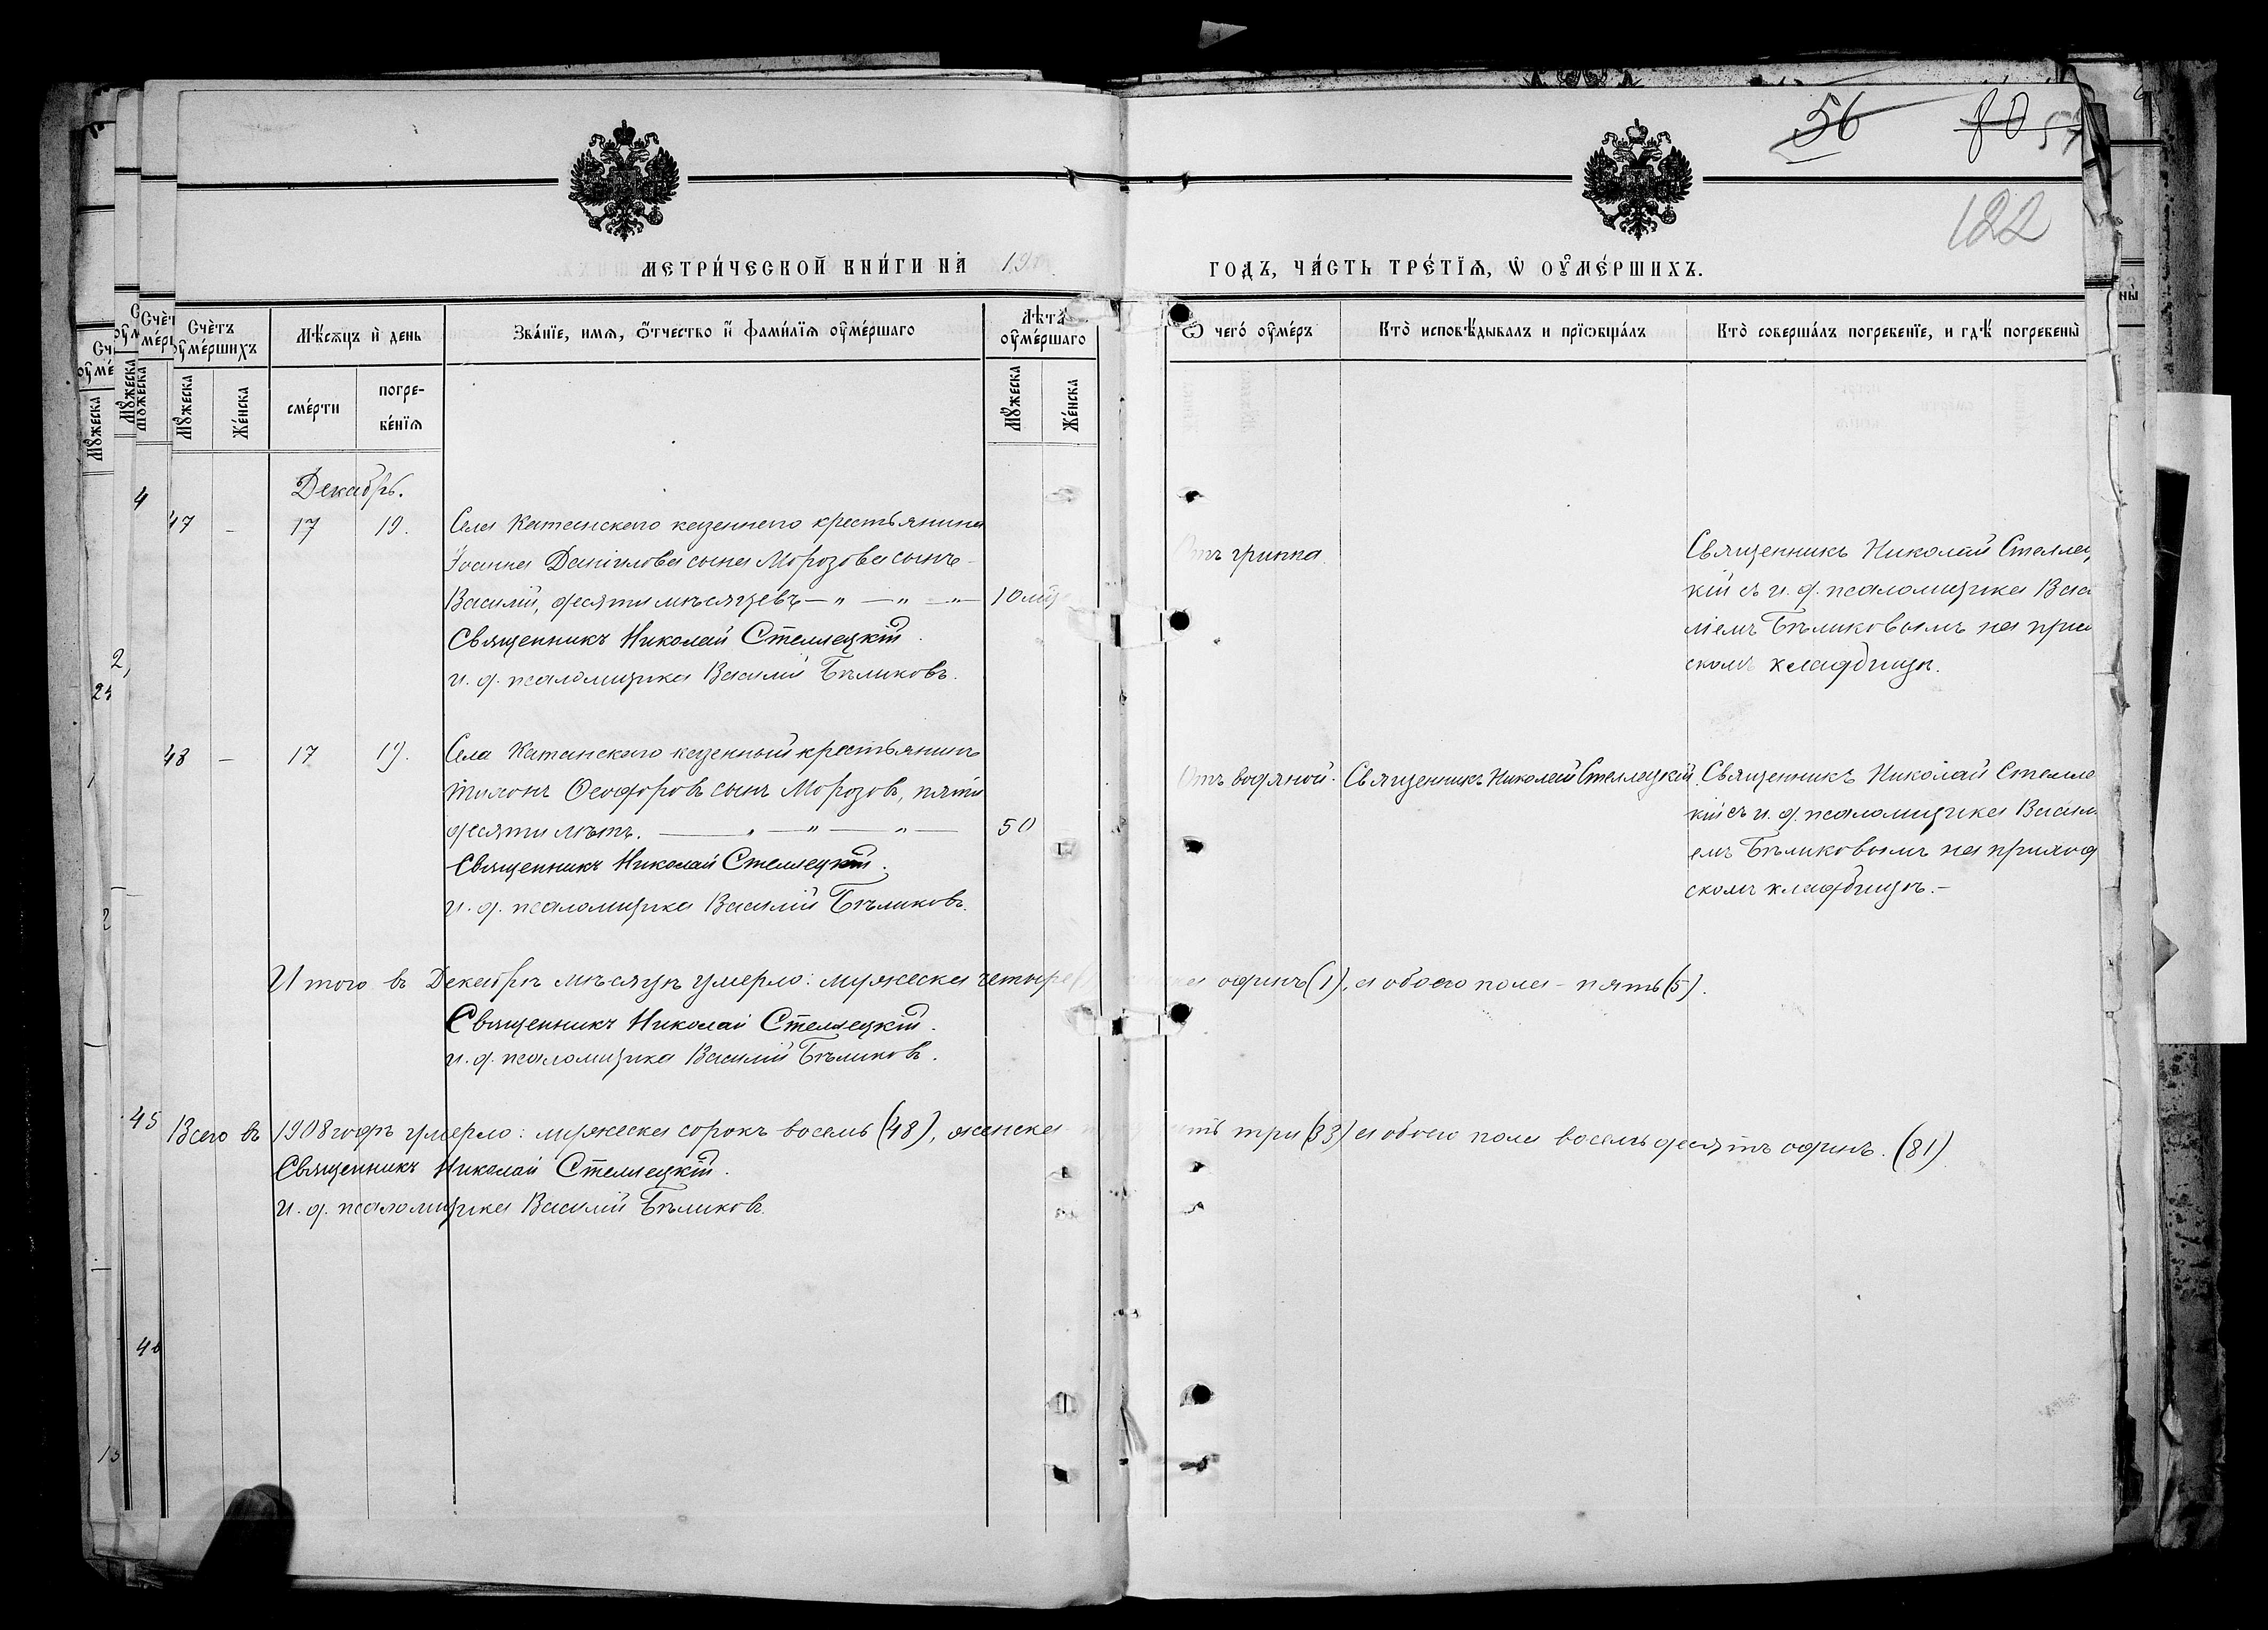 56 80 57
122
МЕТРИ́ЧЕСКОЙ КНИ́ГИ НА̀ 19
ГОДЪ, ЧА́СТЬ ТРЕ́ТЇѦ, Ѡ҆ ОУ҆МЕ́РШИХЪ.
Сче́тъ оу҆ме́ршихъ
Мꙋ́жеска
Же́нска
Мѣ́сѧцъ и҆ де́нь
сме́рти
погре-
бе́нїѧ
Зва́нїе, и́мѧ, ѻ҆́тчество и҆ фами́лїѧ оу҆ме́ршаго
Лѣ́та оу҆ме́ршаго
Мꙋ́жеска
Же́нска
Ѿ чегѡ̀ оу҆́меръ
Кто̀ и҆сповѣ́дывалъ и҆ прїѡбща́лъ
Кто̀ соверша́лъ погребе́нїе, и҆ гдѣ̀ погребены̀
Декабрь.
47 - 17 19.
Села Катанскаго казеннаго крестьянина
Іоанна Даніилова сына Морозова сынъ
Василій, десяти мѣсяцевъ — " — " — " 10 мѣс
Священникъ Николай Стеллецкій.
и. д. псаломщика Василій Бѣликовъ.
Отъ гриппа.
Священникъ Николай Стеллец
кій съ и. д. псаломщика Васи
ліемъ Бѣликовымъ на при
скомъ кладбищѣ.
48 - 17 19.
Села Катанскаго казенный крестьянинъ
Тихонъ Ѳеодоровъ сынъ Морозовъ, пяти
десяти лѣтъ. — " — " — " — 50
Священникъ Николай Стеллецкій.
и. д. псаломщика Василій Бѣликовъ.
Отъ водяной.
Священникъ Николай Стеллецкій.
Священникъ Николай Стелле
кій съ и. д. псаломщика Васил
емъ Бѣликовымъ на приход
скомъ кладбищѣ. -
Итого въ Декабрѣ мѣсяцѣ умерло: мужеска четыре одинъ (1), а обоего пола - пять (5).
Священникъ Николай Стеллецкій.
и. д. псаломщика Василій Бѣликовъ.
Всего въ 1908 годѣ умерло: мужеска сорокъ восемь (48), женска три (33) а обоего пола восемьдесятъ одинъ. (81)
Священникъ Николай Стеллецкій.
и. д. псаломщика Василій Бѣликовъ.